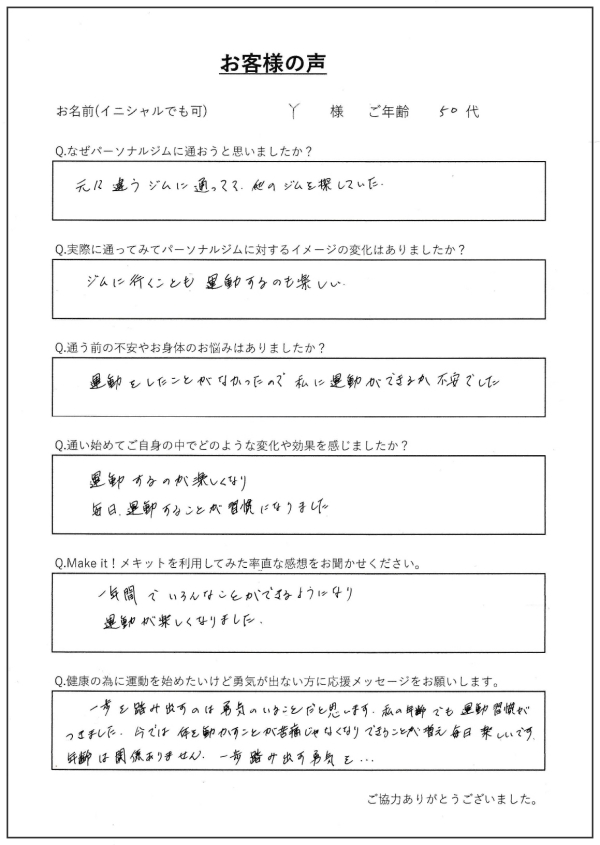 お客様の声
お名前(イニシャルでも可) Y 様 ご年齢 50代
Q.なぜパーソナルジムに通おうと思いましたか？
元は違うジムに通ってて、他のジムを探していた.
Q.実際に通ってみてパーソナルジムに対するイメージの変化はありましたか？
ジムに行くことも 運動するのも楽しい.
Q.通う前の不安やお身体のお悩みはありましたか？
運動をしたことがなかったので 私に運動ができるか 不安でした
Q.通い始めてご自身の中でどのような変化や効果を感じましたか？
運動するのが楽しくなり
毎日、運動することが習慣になりました
Q.Make it！メキットを利用してみた率直な感想をお聞かせください。
一年間で いろんなことができるようになり
運動が楽しくなりました.
Q.健康の為に運動を始めたいけど勇気が出ない方に応援メッセージをお願いします。
一歩を踏み出すのは勇気のいることだと思います. 私の年齢でも運動習慣が
つきました. 今では 体を動かすことが苦痛じゃなくなりできることが増え毎日楽しいです.
年齢は関係ありません. 一歩踏み出す勇気を...
ご協力ありがとうございました。